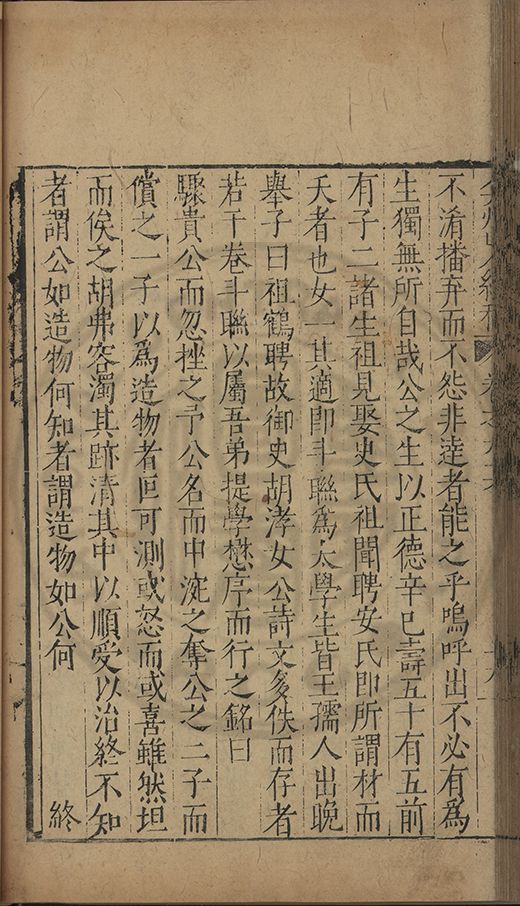 不淆播弃而不怨非達者能之乎嗚呼出不必有爲
生獨無所自哉公之生以正德辛巳壽五十有五前
有子二諸生祖見娶史氏祖聞聘安氏即所謂材而
夭者也女一其適即斗聯爲太學生皆王孺人出晚
舉子曰祖鶴聘故御史胡涍女公詩文多佚而存者
若干卷斗聯以屬吾弟提學懋序而行之銘曰
驟貴公而忽挫之予公名而中淀之奪公之二子而
償之一子以爲造物者叵可測或怒而或喜雖然坦
而俟之胡弗容濁其跡清其中以順受以治終不知
者謂公如造物何知者謂造物如公何
終